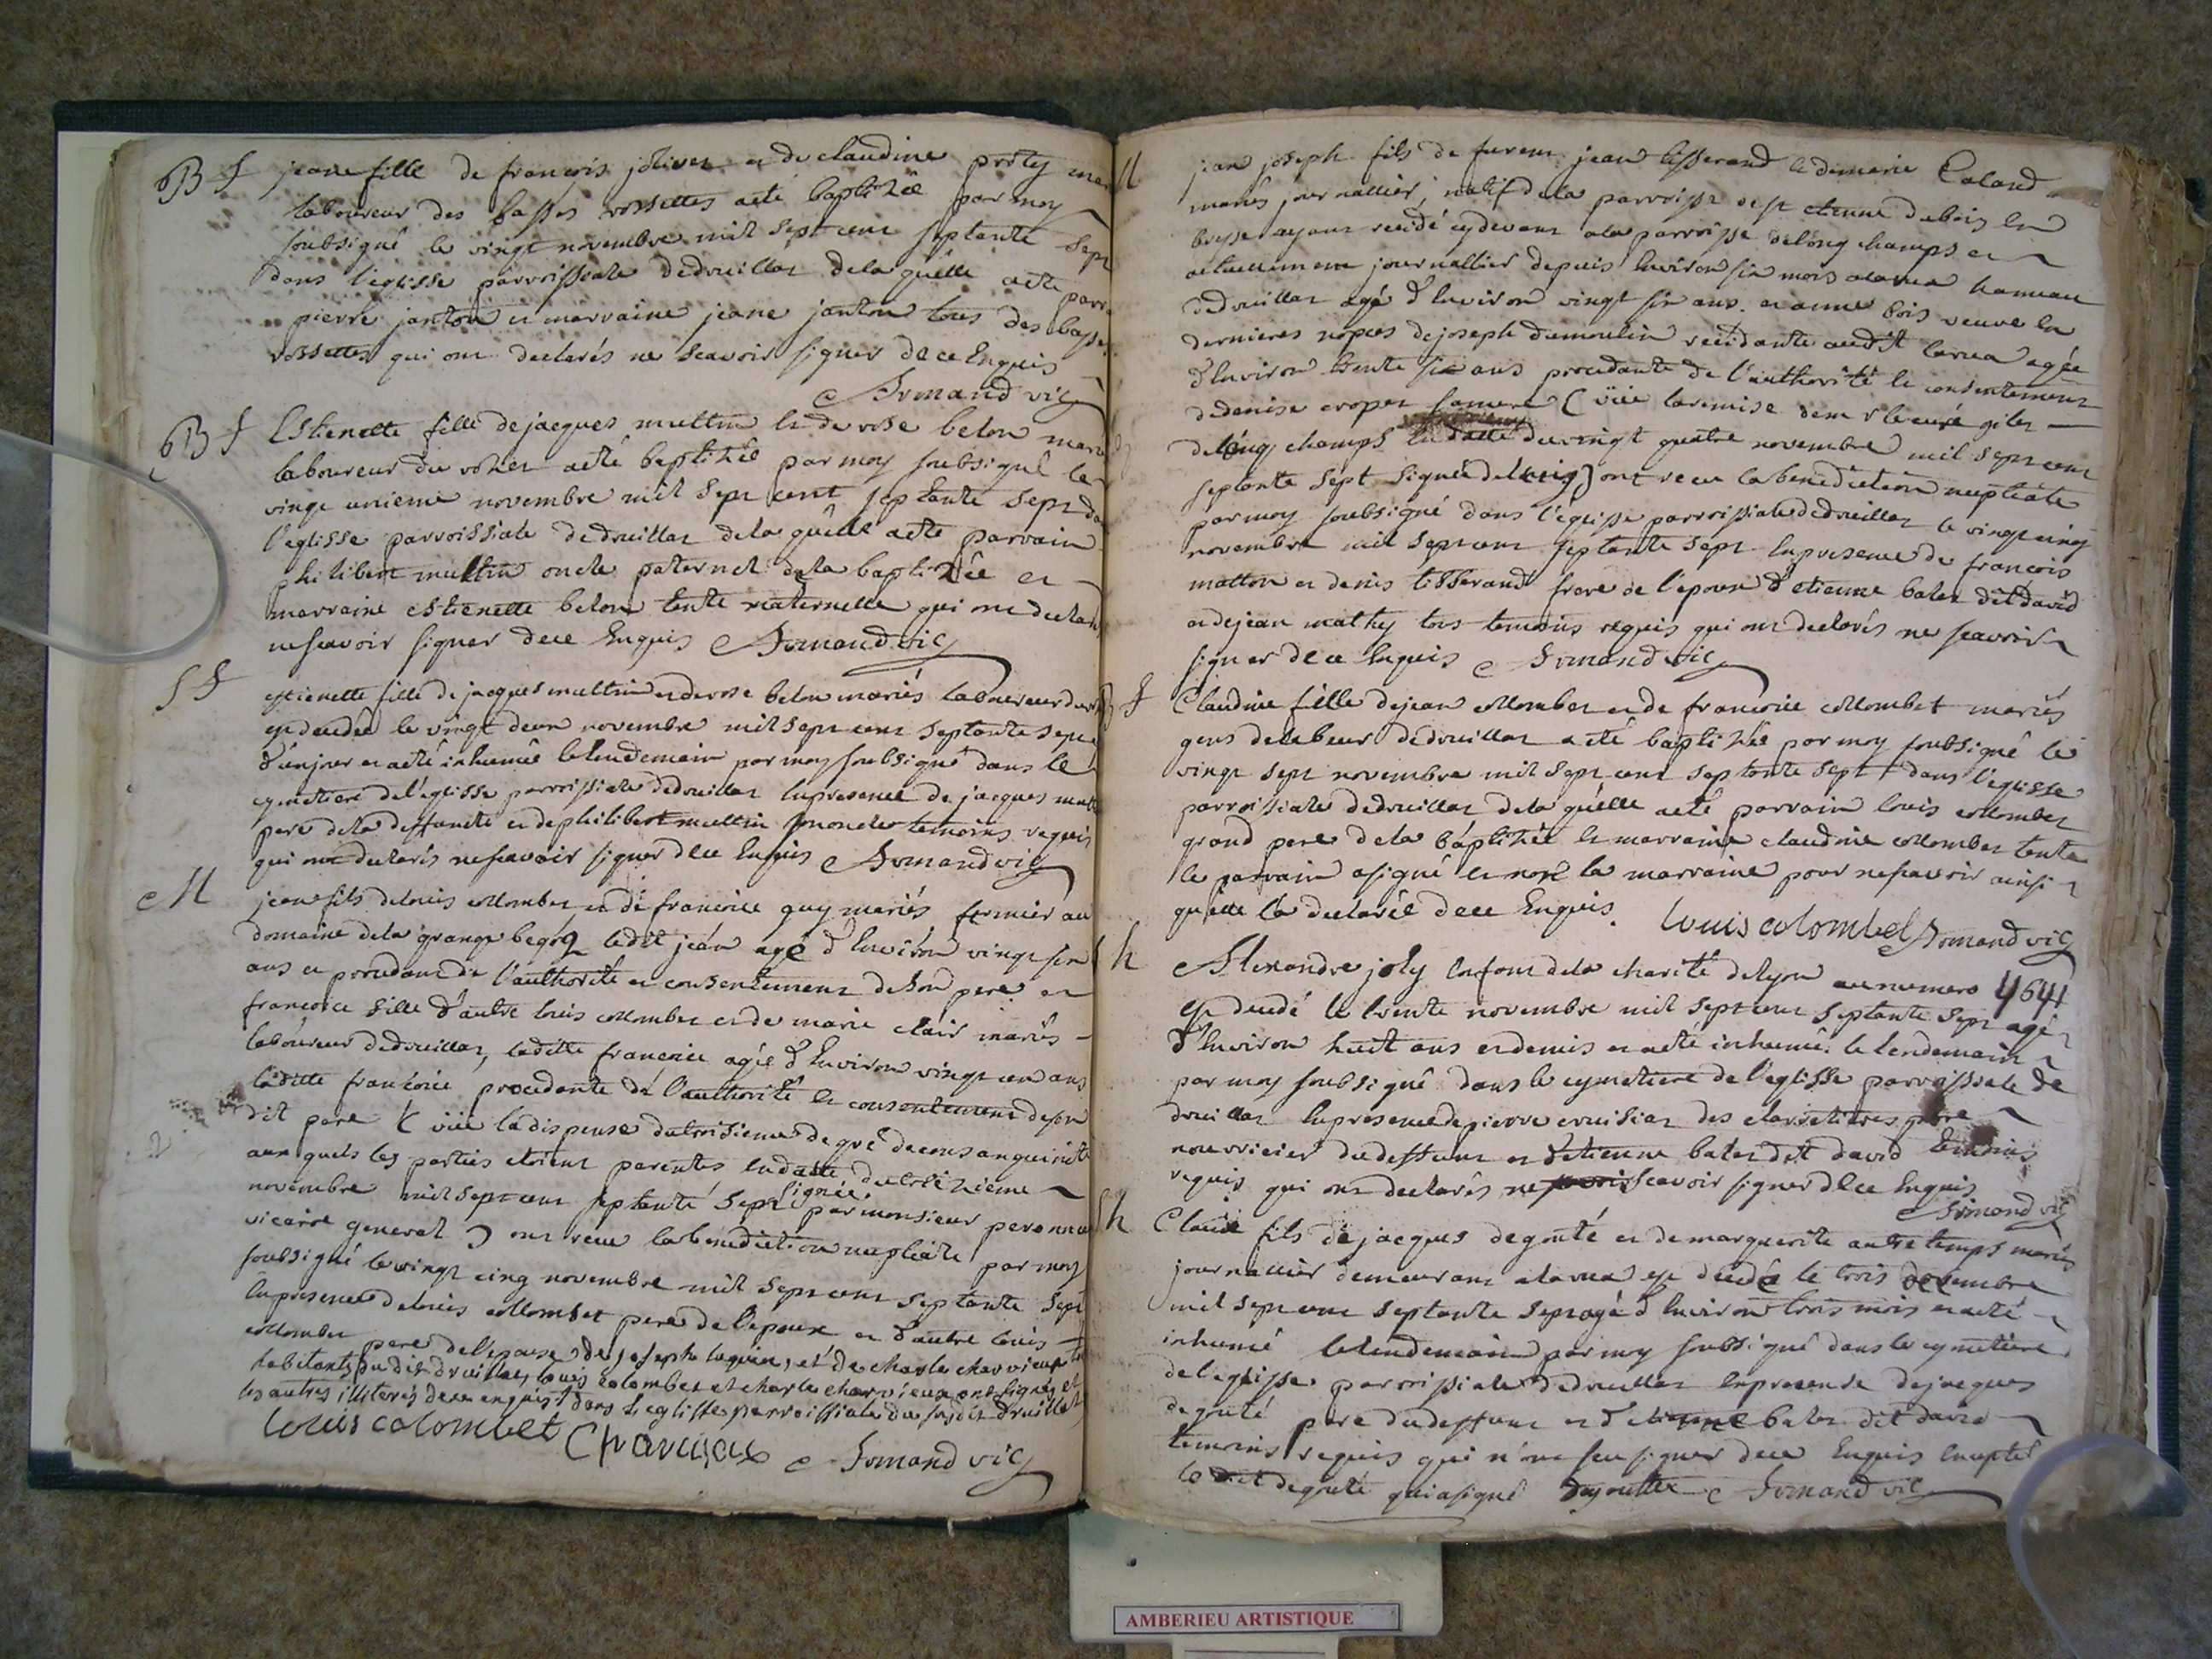 B f
jeane fille de françois joliver et de claudine proty mar
laboureur des basses rossettes a eté baptizée par moy
soubsigné le vingt novembre mil sept cent septante sept
dans l'eglisse parroissiale de druillat de la quelle a ete parr
pierre janton et marraine jeane janton tous des basses
rossettes qui ont declarés ne scavoir signer de ce Enquis
Armand vic
B f
Estienette fille de jacques multin et de rose belon marié
laboureur du a eté baptizée par moy soubsigné le
vingt unieme novembre mil sept cent septante sept da
l'eglisse parroissiale de druillat de la quelle a eté parrain
philibert multin oncle paternel de la baptizée et
marraine estienette belon tente maternelle qui ont declaré
ne scavoir signer de ce Enquis Armand vic
S f
estienette fille de jacques multin et de rose belon mariés laboureur du
est decedée le vingt deux novembre mil sept cent septante sept
d'un jour et a eté inhumée le lendemain par moy soubsigné dans le
cymetiere de l'eglisse parroissiale de druillat En presence de jacques mult
pere de la deffunte et de philibert multin son oncle temoins requis
qui ont declarés ne scavoir signer de ce Enquis Armand vic
M
jean fils de louis collombet et de françoise guy mariés fermier au
domaine de la grange ledit jean agé d'Environ vingt six
ans et procedant de l'authorité et consentement de son pere et
françoise fille d'autre louis collombet et de marie clair mariés
laboureur de druillat, ladite françoise agée d'Environ vingt un ans
laditte françoise procedante de l'authorité et consentement de son
dit pere (vüe la dispense du troisieme degré de consanguinité
aux quels les parties etoient parentes en datte du treizieme
novembre mil sept cent septante sept signée par monsieur
vicaire general) ont recu la benediction nuptiale par moy
soubsigné le vingt cinq novembre mil sept cent septante sept
En presence de louis collombet pere de l'epoux et d'autre louis
collombet pere de l'epouse, de joseph et de charle charvieux
habitants du dit druillat, louis colombet et charle charvieux ont signés et
les autres illiterés de ce enquis dans l'eglisse parroissiale du susdit druillat
louis colombet Charvieux Armand vic
M
jean joseph fils de furent jean tisserand et de marie Caland
mariés journallier, natif de la parroisse de st etienne du bois en
bresse ayant residé cy devant a la parroisse de long champs et
actuellement journallier depuis Environ six mois a larua hameau
de druillat agé d'Environ vingt six ans et anne bois veuve en
dernieres nopces de joseph dumoulin residante audit larua agée
d'Environ trente six ans procedante de l'authorité et consentement
de denise sa mere (vüe la remise de m r le curé
de long champs en datte du vingt quatre novembre mil sept cent
septante sept signée ) ont recu la benediction nuptiale
par moy soubsigné dans l'eglisse parroissiale de druillat le vingt cinq
novembre mil sept cent septante sept En presence de françois
matton et denis tisserand frere de l'epoux d'etienne balet dit david
et de jean mathy tous temoins requis qui ont declarés ne scavoir
signer de ce Enquis Armand vic
B f
Claudine fille de jean collombet et de françoise collombet mariés
gens de labeur de druillat a eté baptizée par moy soubsigné le
vingt sept novembre mil sept cent septante sept dans l'eglisse
parroissiale de druillat de la quelle a eté parrain louis collombet
grand pere de la baptizée et marraine claudine collombet tente
le parrain a signé et non la marraine pour ne scavoir ainsi
qu'elle l'a declarée de ce Enquis. louis colombet Armand vic
h
Alexandre joly Enfant de la charité de lyon au numero 4641
est decedé le trente novembre mil sept cent septante sept agé
d'Environ huit ans et demis et a eté inhumé le lendemain
par moy soubsigné dans le cymetiere de l'eglisse parroissiale de
druillat En presence de pierre des pere
nourricier du deffunt et d'etienne balet dit david temoins
requis qui ont declarés ne scavoir signer de ce Enquis
Armand vic
h
Claude fils de jacques degouté et de marguerite autre temps mariés
journallier demeurant a larua est decedé le trois decembre
mil sept cent septante sept agé d'Environ trois mois et a eté
inhumé le lendemain par moy soubsigné dans le cymetiere
de l'eglisse parroissiale de druillat En presence de jacques
degouté pere du deffunt et d'etienne balet dit david
temoins requis qui n'ont scu signer de ce Enquis Excepté
le dit degouté qui a signé degoutte Armand vic
AMBERIEU ARTISTIQUE